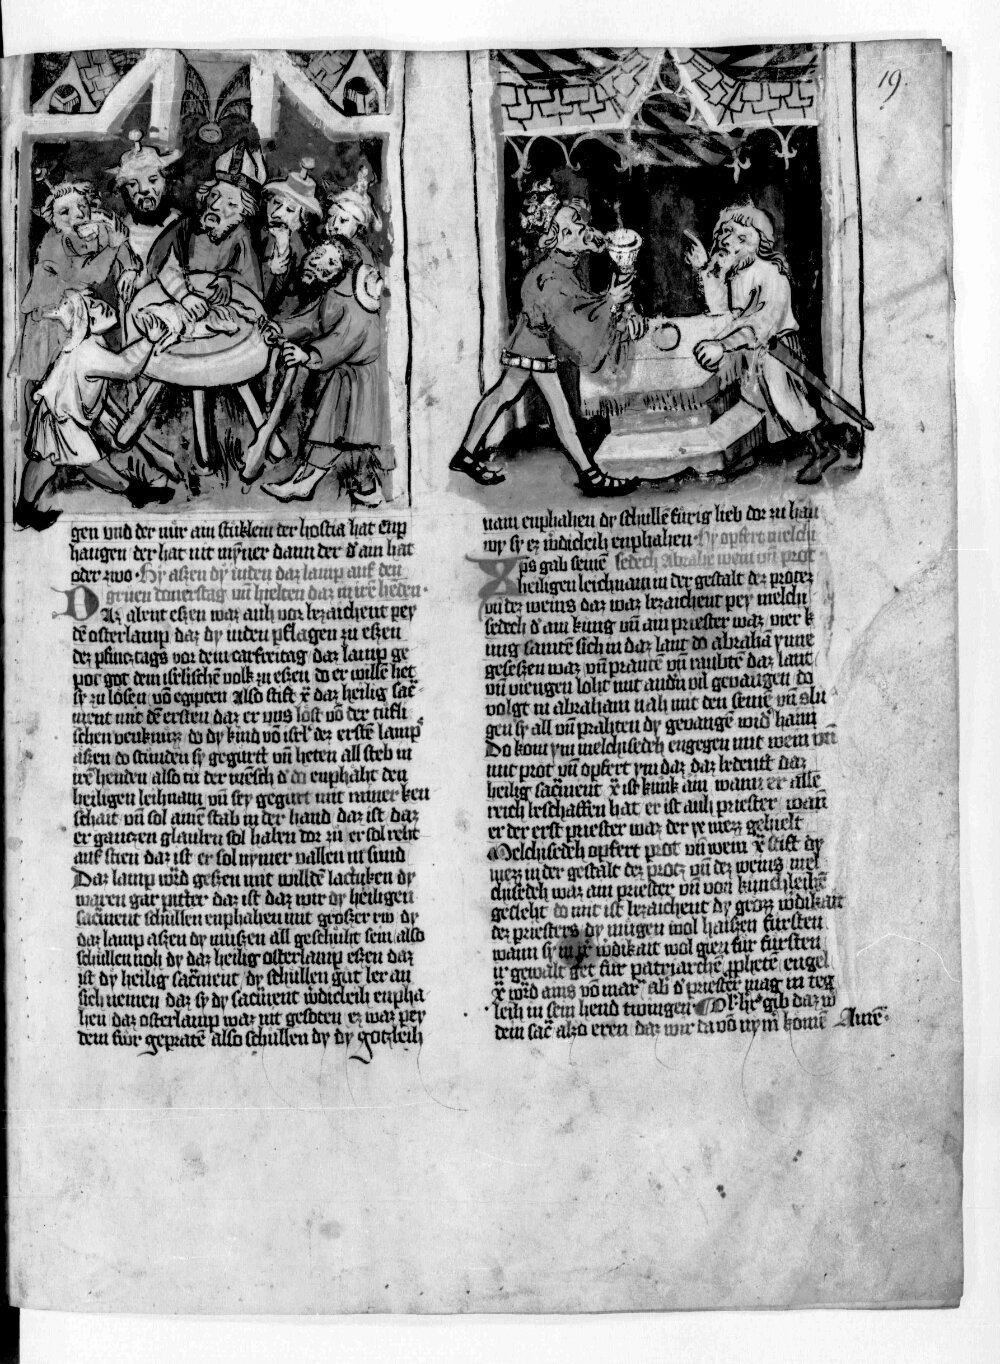 19.
gen vnd der nur ain stuklein der hostia hat enp
hangen der hat nit mynner dann der d ain hat
oder zwo · Hy aßen dy iuden daz lamp auf den
grünen donerstag vn hielten daz in irē henden ·
Daz abent eßen waz auh vor bezaichent pey
dē osterlamp daz dy iuden pflagen zu eßen
dez pfincztags vor dem carfreitag daz lamp ge
pot got dem iselischen volk zu eßen do er willē het
sy zu lösen vō egipten Also stift xp̄c daz heilig sac̄
ment mit dē ersten daz er vns lost vō der tüfli
schen venknuzz do dy kind vō isrl̄ dez erstē lamp
aßen do stunden sy gegurtt vn̄ heten all steb in
irē henden also in der mensch d do enphaht den
heiligen leihnam vn̄ sey gegurt mit rainer keu
schait vn̄ sol ainē stab in der hand daz ist daz
er ganczen glauben sol haben dor zu er sol reht
auf stien daz ist er sol nymer vallen in sund
Daz lamp wird geßen mit willdē lactuken dy
waren gar pitter daz ist daz wir dy heiligen
sacm̄ent schullen enphahen mit großer rew dy
daz lamp aßen dy mußen all geschuht sein also
schullen noh dy daz heilig osterlamp eßen daz
ist dy heilig sacm̄ent dy schullen gut ler an
sich nemen daz sy dy sacm̄ent wirdicleih enpha
hen daz osterlamp waz nit gesoten ez waz pey
dem fwr gepratē also schullen dy dy gotzleih
nam enphahen dy schullē furig lieb dor zu han
wy sy ez wirdicleih enphahen · Hy opfert melchi
Xp̄s gab seinē sedech Abrahē wein vn̄ prot
heiligen leichnam in der gestalt dez protez
vn dez weins daz waz bezaichent pey melchi
sedech d ain kung vn̄ ain priester waz vier k
ung samten sich in daz lant do abraham ynne
geseßen waz vn̄ pranten vn̄ raubtē daz lant
vn̄ viengen loht mit andn̄ vil gevangen do
volgt in abraham nah mit den seinē vn̄ slu
gen sy all vn̄ prahten dy gevangē wid haim
Do kom ym melchisedeh engegen mit wein vn̄
mit prot vn̄ opfert ym daz daz bedeutt daz
heilig sacm̄ent xp̄c ist kunk ain wann er alle
reich beschaffen hat er ist auh priester wan
er der erst priester waz der ye mezz gehielt
Melchisedeh opfert prot vn̄ wein xp̄c stift dy
mezz in der gestalt dez protz vn̄ dez weins mel
chisedeh waz ain priester vn̄ von kunchleihē
gesleht do mit ist bezaichent dy grozz wirdikait
dez priesters dy mugen wol haißen fursten
wann sy in irr wirdikait wol gien fur fursten
ir gewalt get fur patriarchē p̄phetē engel
xp̄c wird ains vō mar̄ ab d priester mag in teg
leih in sein hend twingen O h̄r ih̄c gib daz w
dem sac̄ also eren daz wir da vō nym̄ komē Amē ·